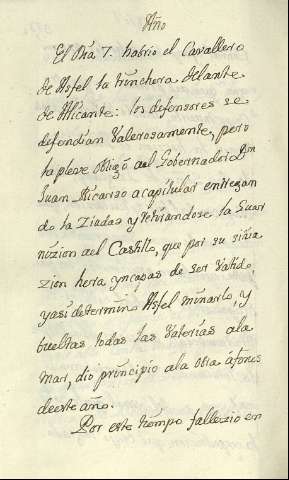 Año
El Dia 7. habrio el Cavallero
de Asfel la trinchera delante
de Alicante: los defensores se
defendian Valerosamente, pero
la pleve obligó al Gobernador Dn
Juan Ricarso a capitular entregan
do la Ziudad y retirandose la Guar
nizion al Castillo, que por su situa
zion hera yncapas de ser Vatido,
y asi determinó Asfel minarlo, y
bueltas todas las Vaterias a la
mar, dio principio a la obra a fines
de este año.
Por este tiempo fallezio en